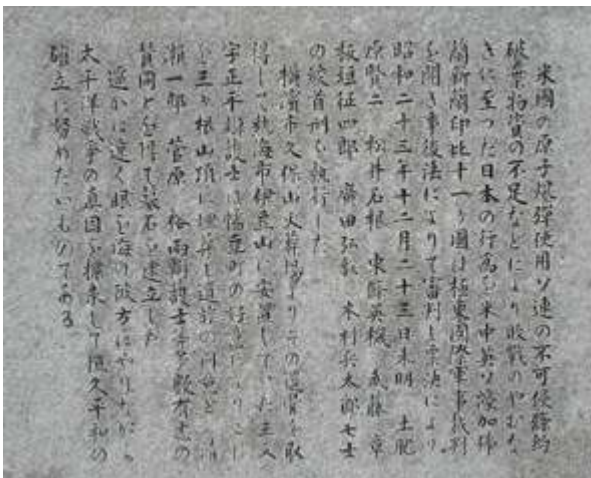 米國の原子爆彈使用ソ連の不可侵條約
破棄物資の不足などにより敗戰のやむな
きに至つた日本の行爲を米中英ソ濠加佛
蘭新蘭印比十一ヶ國は極東國際軍事裁判
を開き事後法によりて審判し票決により
昭和二十三年十二月二十三日未明 土肥
原賢二 松井石根 東條英機 武藤 章
板垣征四郎 廣田弘毅 木村兵太郎七士
の絞首刑を執行した
横濱市久保山火葬場よりその遺骨を取
得して熱海市伊豆山に安置していた三文
字正平辯護士は幡豆町の好意によりこれ
を三ヶ根山頂に埋葬し遺族の同意と 清
瀬一郎 菅原 裕兩辯護士等多數有志の
賛同とを得て墓石を建立した
遥かに遠く眼を海の彼方にやりながら
太平洋戰爭の真因を探求して恒久平和の
確立に努めたいものである